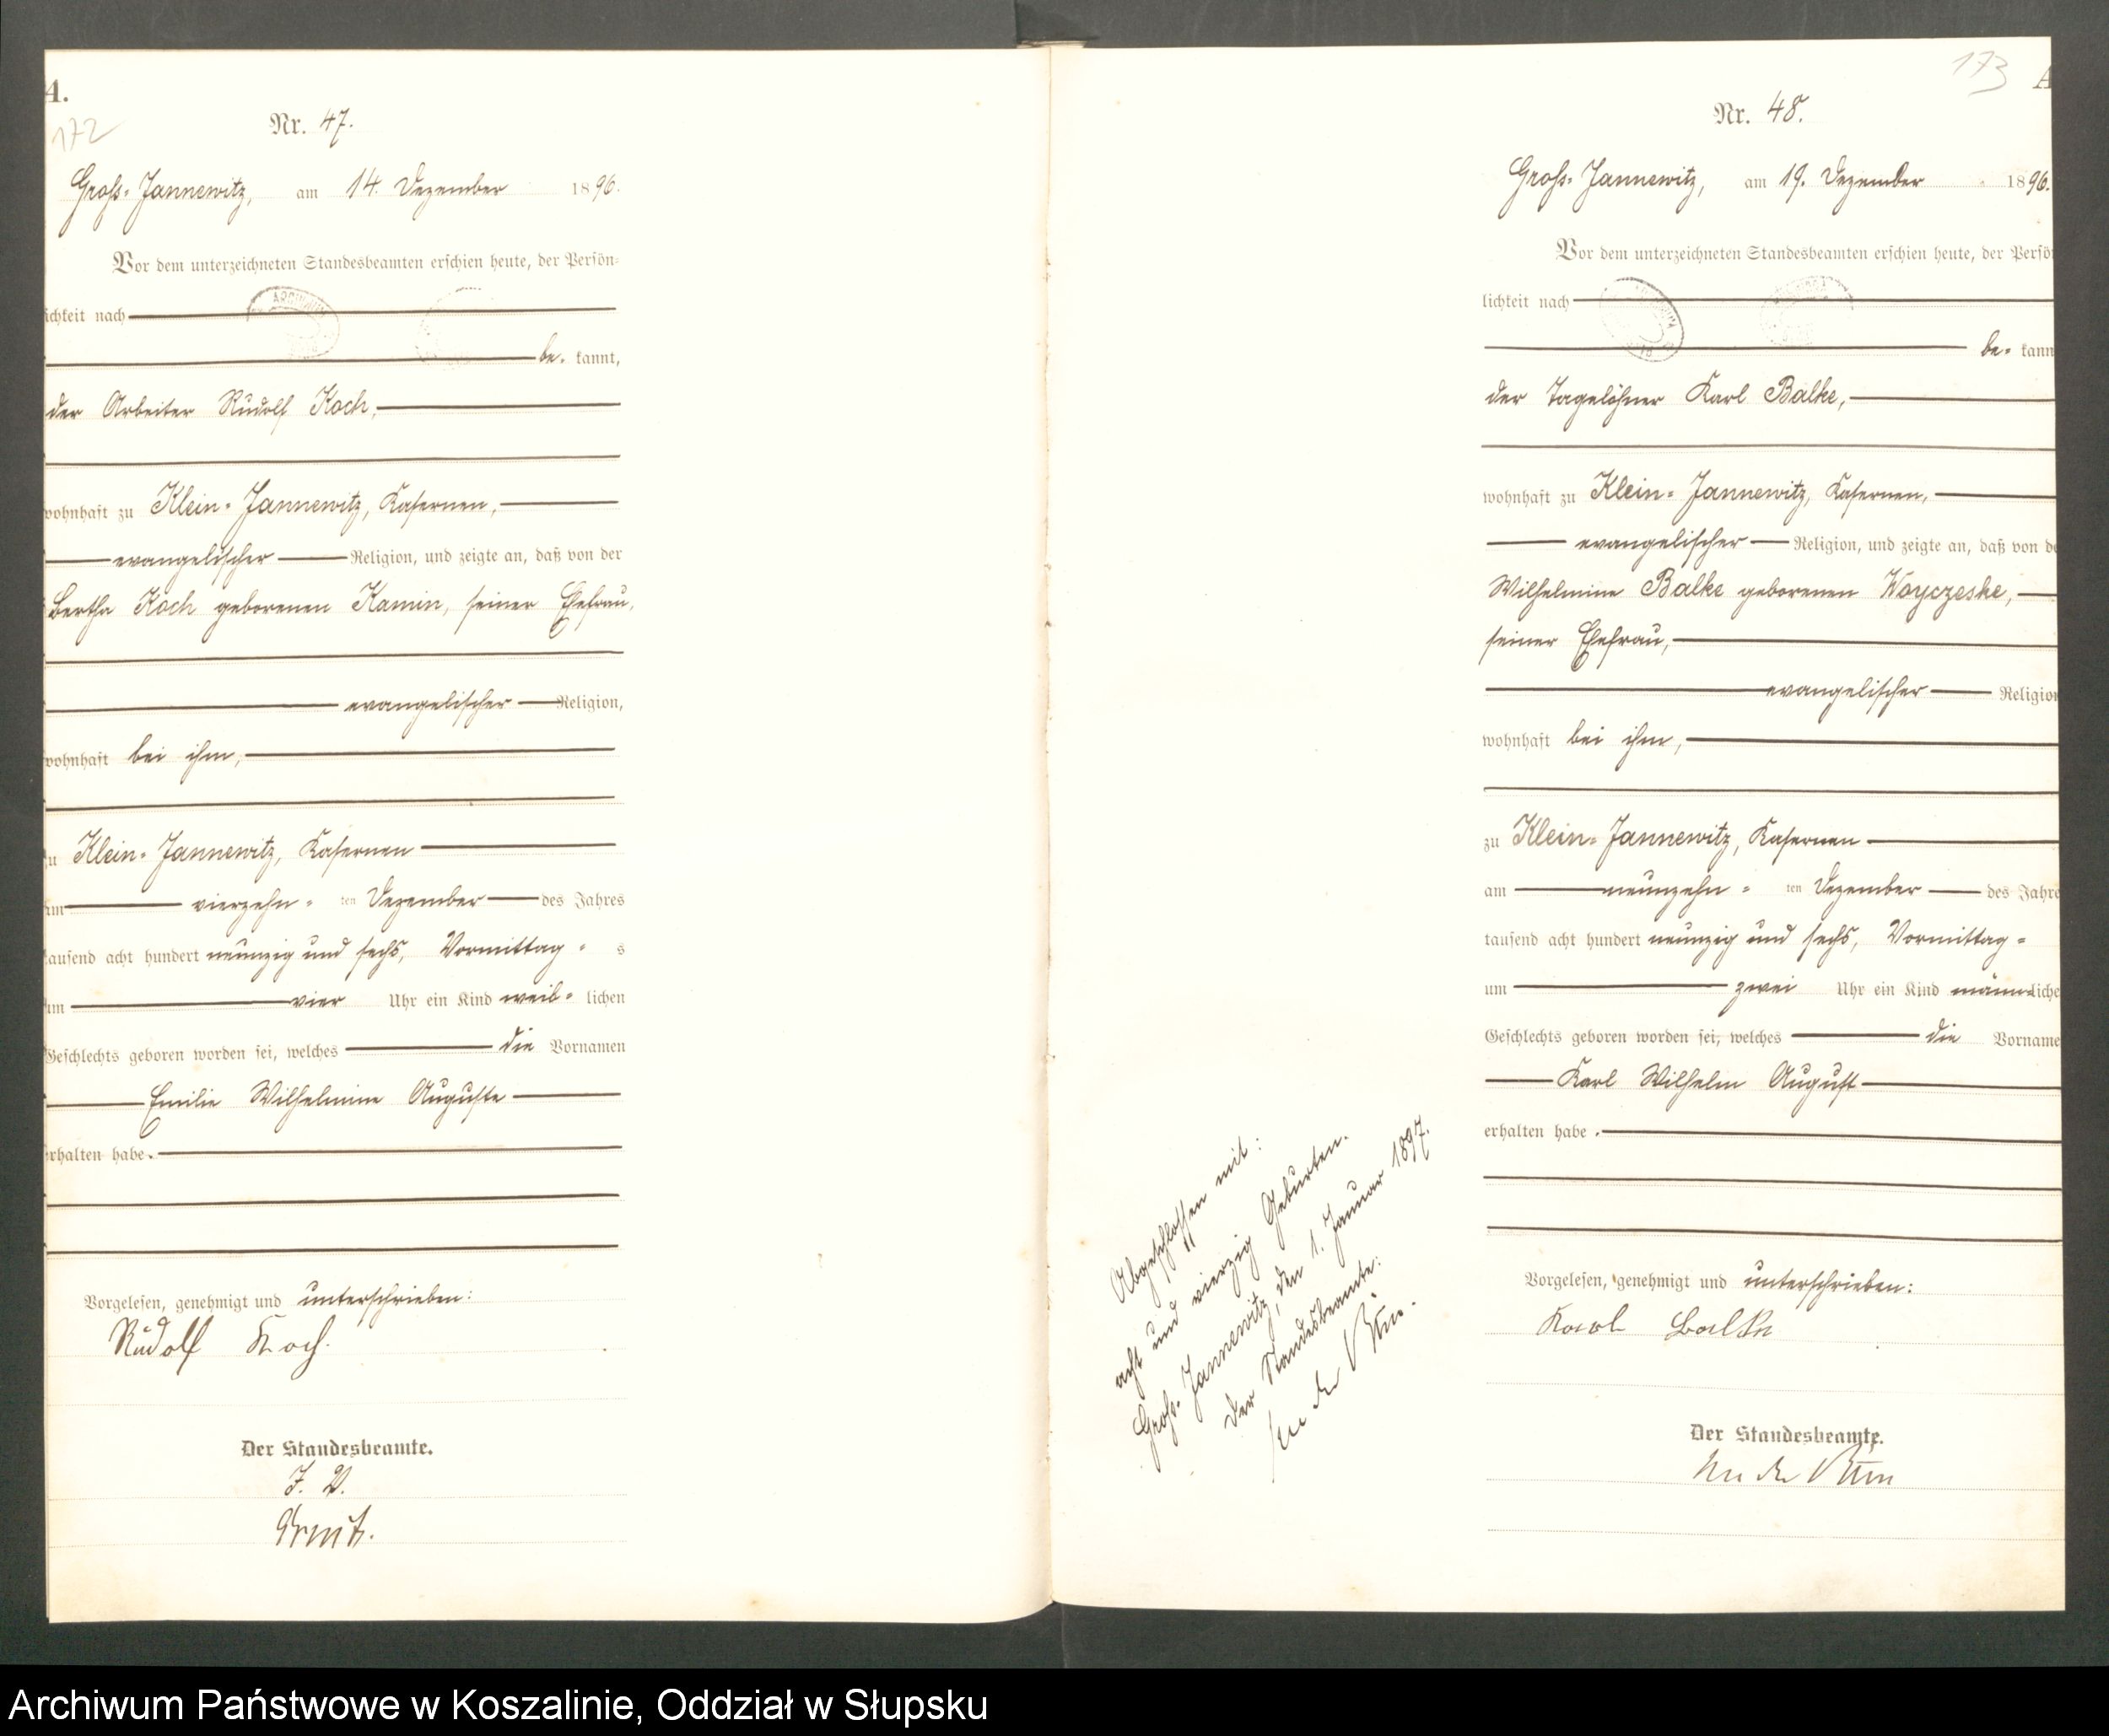 A.
172
Nr. 47.
Groß-Jannewitz, am 14. Dezember 1896.
Vor dem unterzeichneten Standesbeamten erschien heute, der Persön-
lichkeit nach
be- kannt,
der Arbeiter Rudolf Koch,
wohnhaft zu Klein-Jannewitz, Kasernen,
evangelischer Religion, und zeigte an, daß von der
Bertha Koch geborenen Kamin, seiner Ehefrau,
evangelischer Religion,
wohnhaft bei ihm,
zu Klein-Jannewitz, Kasernen
am vierzehn- ten Dezember des Jahres
tausend acht hundert neunzig und sechs, Vormittag- s
um vier Uhr ein Kind weib- lichen
Geschlechts geboren worden sei, welches die Vornamen
Emilie Wilhelmine Auguste
erhalten habe.
Vorgelesen, genehmigt und unterschrieben:
Rudolf Koch.
Der Standesbeamte.
J. V.
173
A
Nr. 48.
Groß-Jannewitz, am 19. Dezember 1896.
Vor dem unterzeichneten Standesbeamten erschien heute, der Persö
lichkeit nach
be- kann
der Tagelöhner Karl Balke,
wohnhaft zu Klein-Jannewitz, Kasernen,
evangelischer Religion, und zeigte an, daß von de
Wilhelmine Balke geborenen Woyczeske,
seiner Ehefrau,
evangelischer Religion
wohnhaft bei ihm,
zu Klein-Jannewitz, Kasernen
am neunzehn- ten Dezember des Jahre
tausend acht hundert neunzig und sechs, Vormittag-
um zwei Uhr ein Kind männliche
Geschlechts geboren worden sei, welches die Vorname
Karl Wilhelm August
erhalten habe.
Vorgelesen, genehmigt und unterschrieben:
Karl Balke
Der Standesbeamte.
Abgeschlossen mit:
acht und vierzig Geburten.
Groß-Jannewitz, den 1. Januar 1897.
Der Standesbeamte:
Archiwum Państwowe w Koszalinie, Oddział w Słupsku